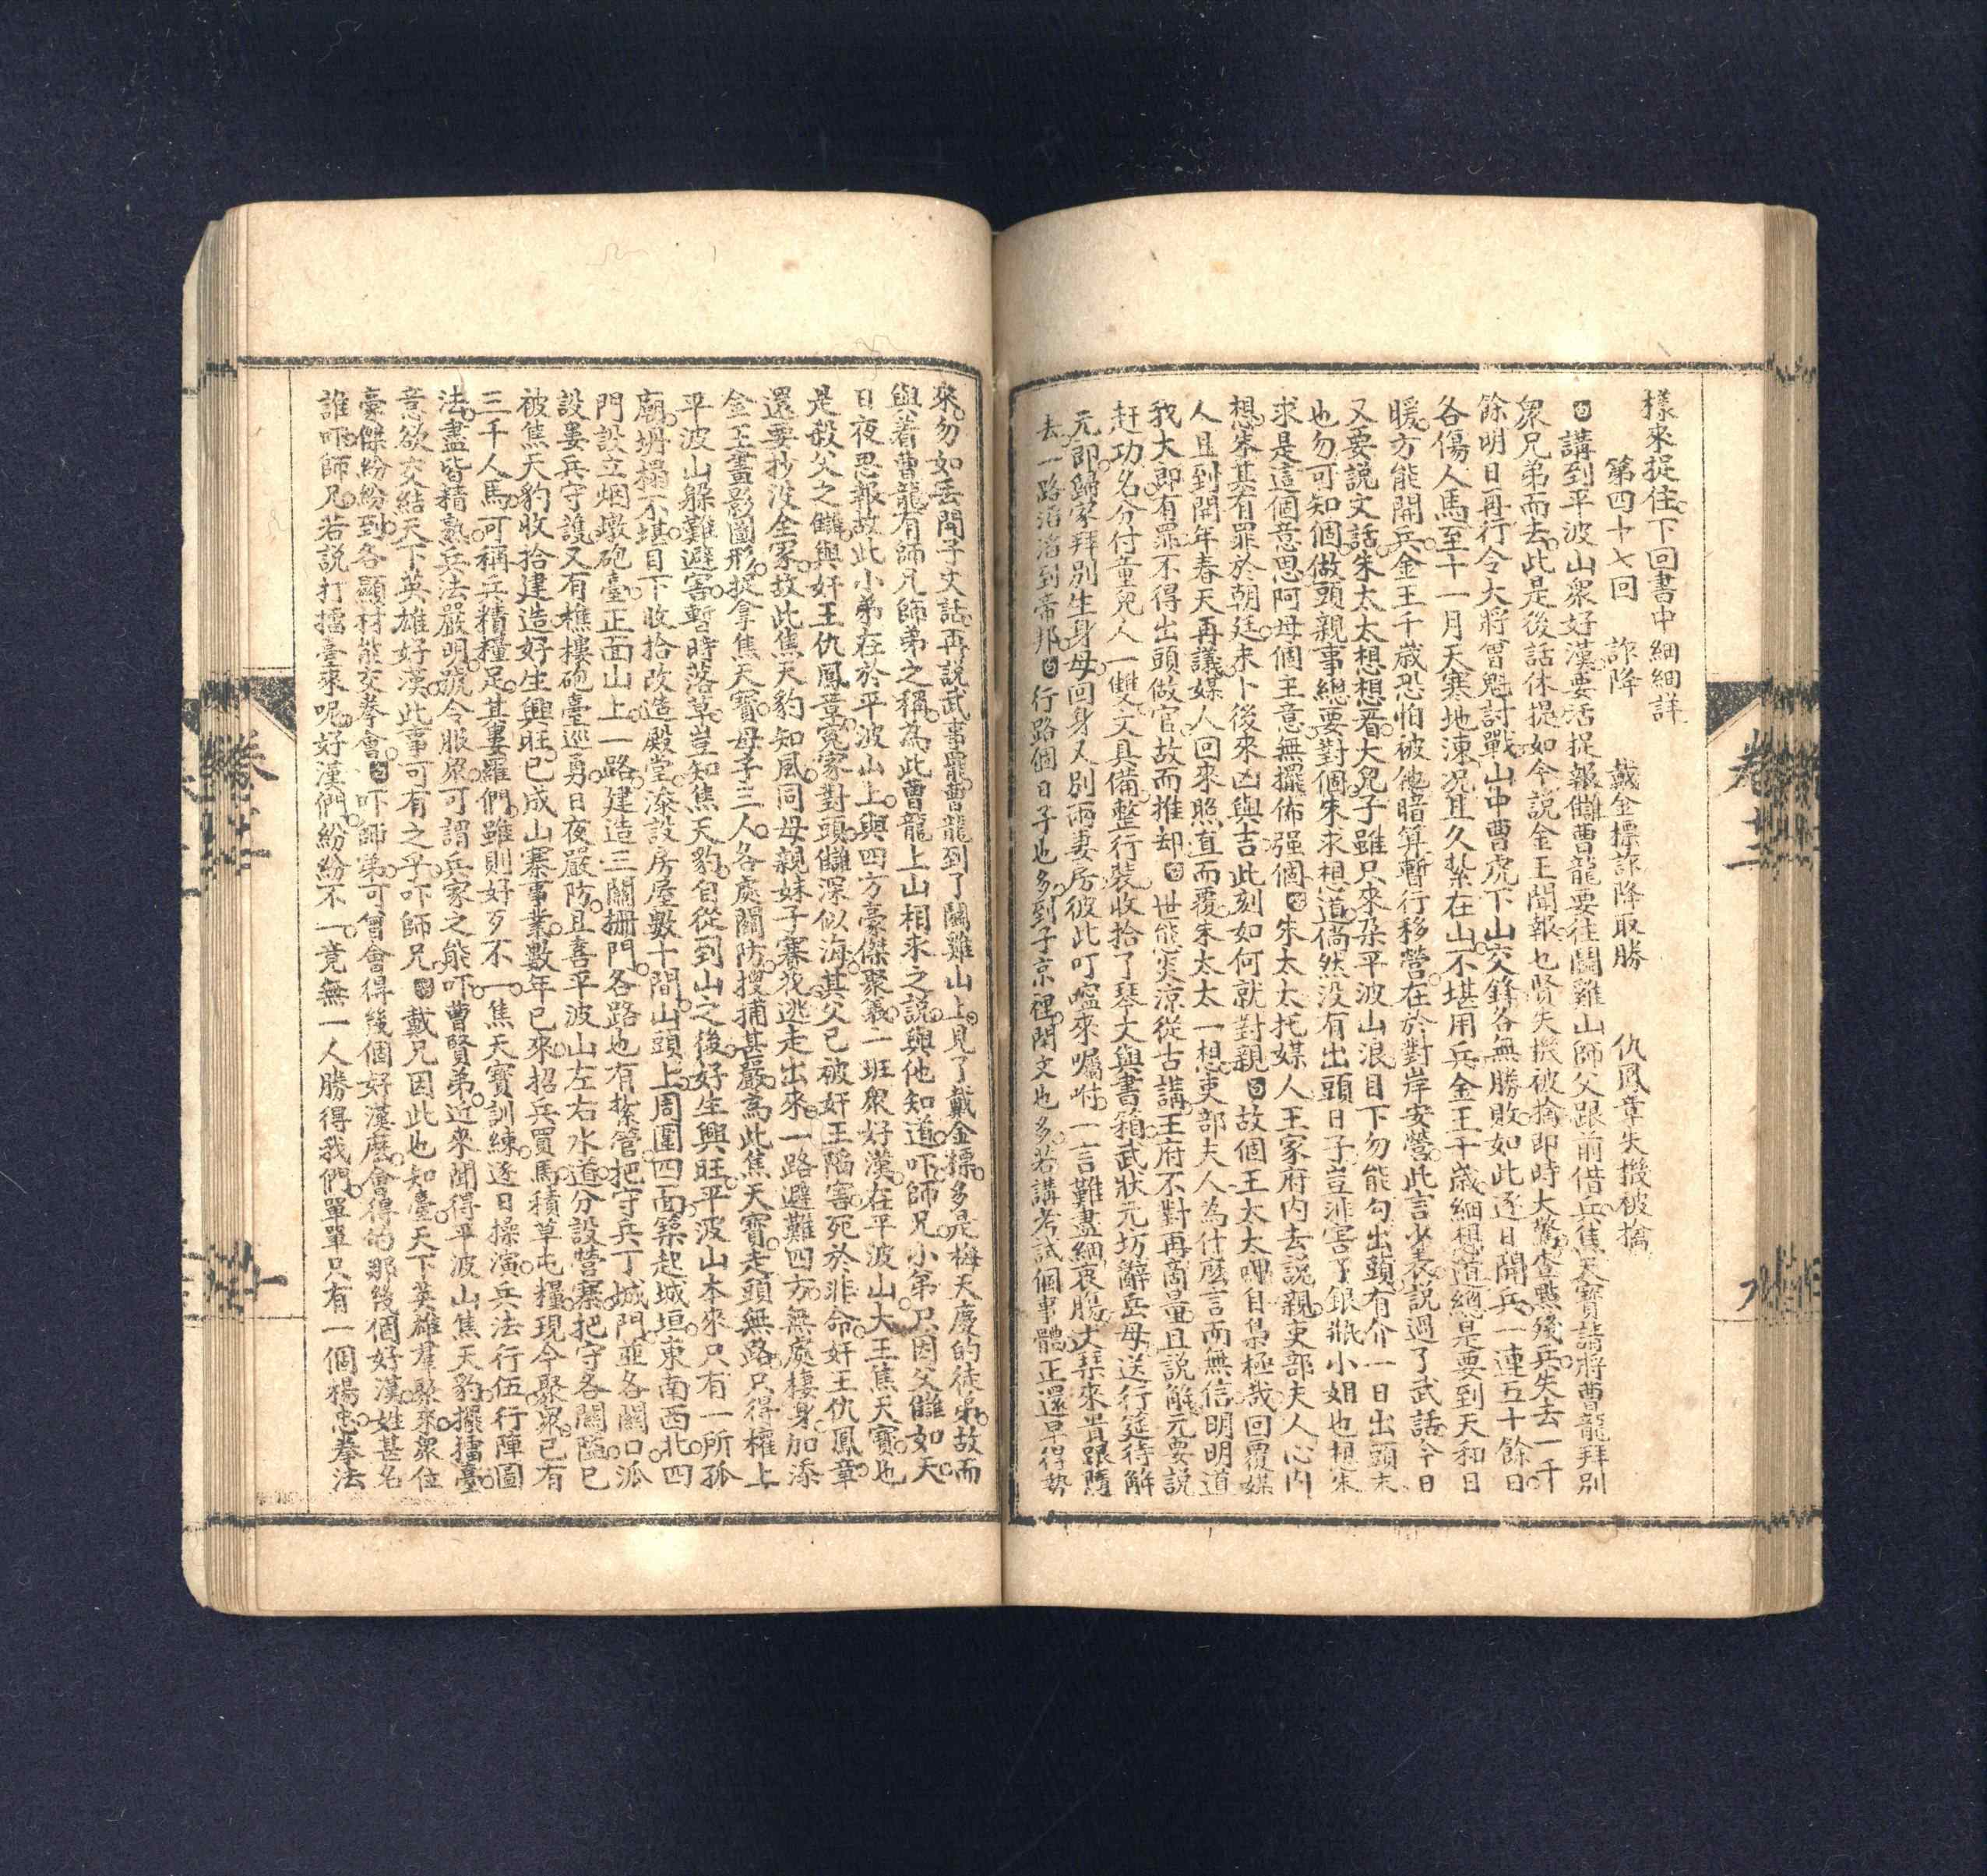 樣來捉住下回書中細細詳
第四十七回 詐降 戴金標詐降取勝 仇鳳章失機被擒
白講到平波山衆好漢要活捉報讎曹龍要往鬭雞山師父跟前借兵焦天寶請將曹龍拜別
衆兄弟而去此是後話休提如今說金王聞報也賢失機被擒即時大驚查點殘兵失去一千
餘明日再行令大將曾魁討戰山中曹虎下山交鋒各無勝敗如此逐日開兵一連五十餘日
各傷人馬至十一月天寒地凍况且久紮在山不堪用兵金王千歲細想道總是要到天和日
暖方能開兵金王千歲恐怕被他暗算暫行移營在於對岸安營此言少表説過了武話今日
又要説文話朱太太想想看大兒子雖只來朶平波山浪目下勿能勾出頭有介一日出頭末
也勿可知個做頭親事總要對個朱求想道倘然没有出頭日子豈非害了銀瓶小姐也想朱
求是這個意思阿母個主意無擺佈强個白朱太太托媒人王家府内去説親吏部夫人心内
想岑其有罪於朝廷未卜後來凶與吉此刻如何就對親白故個王太太呷自杲極哉回覆媒
人且到開年春天再議媒人回來照直而覆朱太太一想吏部夫人為什麽言而無信明明道
我大即有罪不得出頭做官故而推却白世態炎涼從古講王府不對再商量且説解元要説
赶功名分付童兒人一雙文具備整行裝收拾了琴文與書箱武狀元坊辭岳母送行筵待解
元即歸家拜別生身母回身又別兩妻房彼此叮嚀來囑咐一言難盡細衷腸文琹來肯跟隨
去一路滔滔到帝邦白行路個日子也多到子京裡閑文也多若講考試個事體正還早得勢
來勿如丢開子文話再説武事罷曹龍到了鬭雞山上見了戴金標多是梅天慶的徒弟故而
與着曹龍有師兄師弟之稱為此曹龍上山相求之説與他知道吓師兄小弟只因父讎如天
日夜思報故此小弟在於平波山上與四方豪傑聚義二班衆好漢在平波山大王焦天寶也
是殺父之讎與奸王仇鳳章寃家對頭讎深似海其父已被奸王陷害死於非命奸王仇鳳章
還要抄没全家故此焦天豹知風同母親妹子寨花逃走出來一路避難四方無處棲身加添
金王畫影圖形捉拿焦天寶母子三人各處關防搜捕甚嚴為此焦天寶走頭無路只得權上
平波山躲難避害暫時落草豈知焦天豹自從到山之後好生興旺平波山本來只有一所孤
廟坍塌不堪目下收拾改造殿堂添設房屋數十間山頭上周圍四面築起城垣東南西北四
門設立烟墩砲臺正面山上一路建造三關柵門各路也有紮管把守兵丁城門並各關口派
設嘍兵守護又有樵樓砲臺巡勇日夜嚴防且喜平波山左右水道分設營寨把守各關隘已
被焦天豹收拾建造好生興旺已成山寨事業數年已來招兵買馬積草屯糧現今聚衆已有
三千人馬可稱兵精糧足其嘍羅們雖則好歹不一焦天寶訓練逐日操演兵法行伍行陣圖
法盡皆精熟兵法嚴明號令服衆可謂兵家之能吓曹賢弟近來聞得平波山焦天豹擺擂臺
意欲交結天下英雄好漢此事可有之乎吓師兄白戴兄因此也知臺天下英雄羣聚來衆位
豪傑紛紛到各顯材能交拳會白吓師弟可曾會得幾個好漢麽會得的那幾個好漢姓甚名
誰吓師兄若説打擂臺來呢好漢們紛紛不一竟無一人勝得我們單單只有一個楊忠拳法